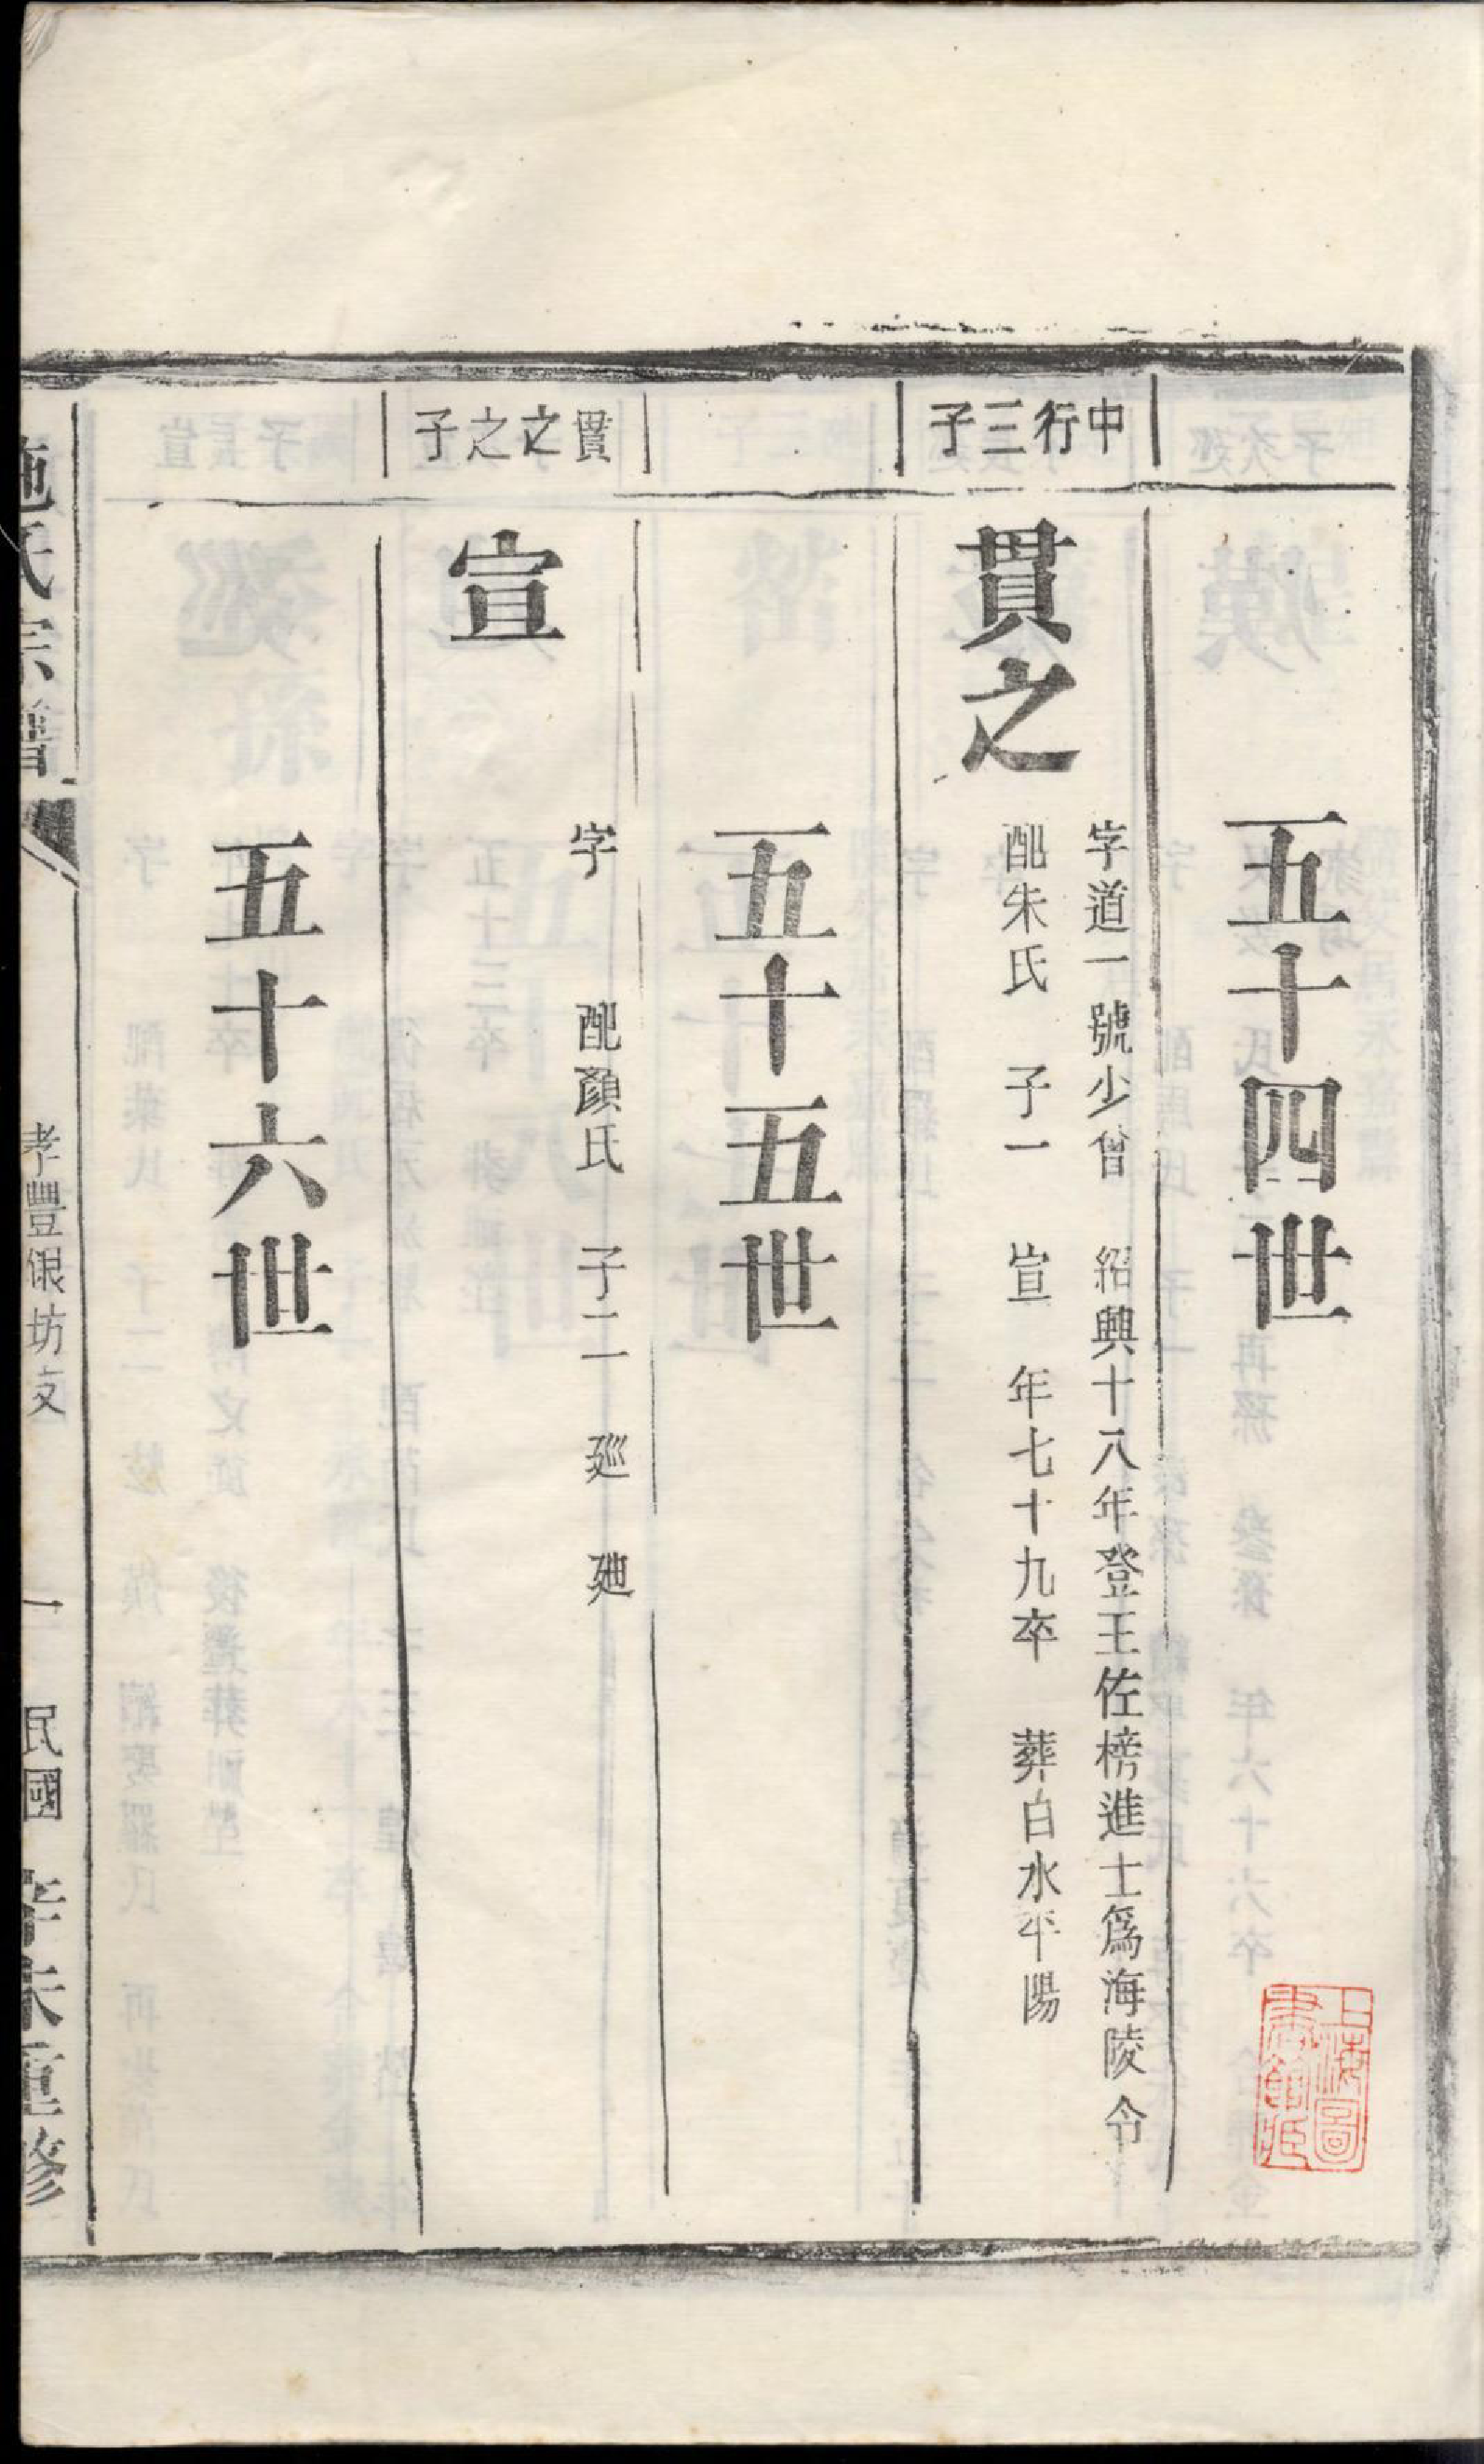 五十四世
中行三子
貫之
字道一號少曾 紹興十八年登王佐榜進士爲海陵令
配朱氏 子一 宣 年七十九卒 葬白水平陽
五十五世
貫之之子
宣
字 配顏氏 子二 廵 廸
五十六世
施氏宗譜 孝豐銀坊支 一 民國 修
上海圖書館藏